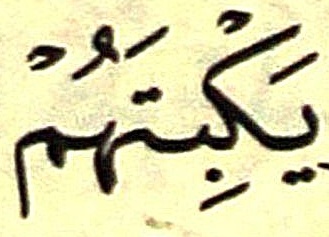 يَكْبِتَهُمْ